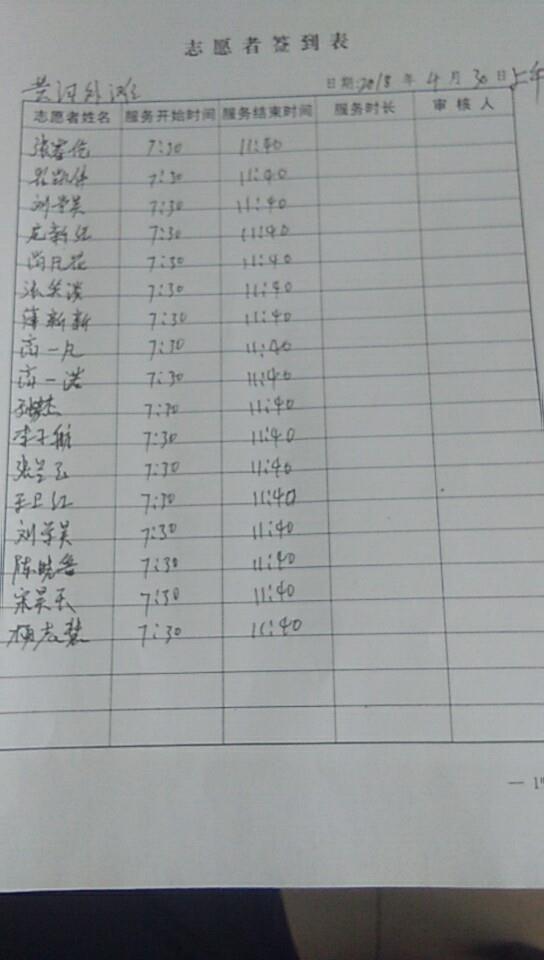 志愿者签到表
黄河外滩 日期:2018年4月30日上午
志愿者姓名 服务开始时间 服务结束时间 服务时长 审核人
7:30 11:40
7:30 11:40
刘学昊 7:30 11:40
7:30 11:40
7:30 11:40
张笑淡 7:30 11:40
薄新新 7:30 11:40
高一凡 7:30 11:40
高一诺 7:30 11:40
7:30 11:40
李子航 7:30 11:40
张兰玉 7:30 11:40
王卫红 7:30 11:40
刘学昊 7:30 11:40
陈晓鲁 7:30 11:40
宋昊天 7:30 11:40
7:30 11:40